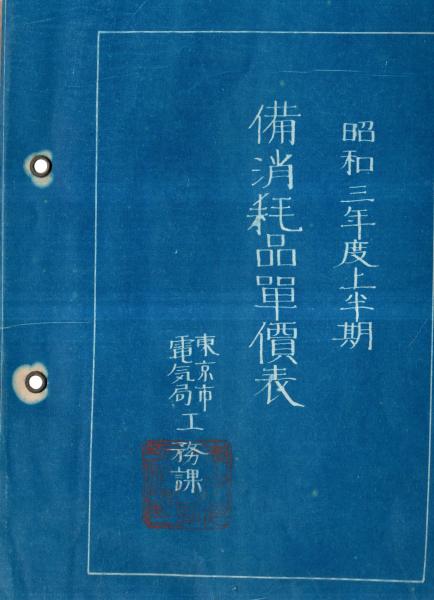 昭和三年度上半期
備消耗品單價表
東京市
電気局
工務課